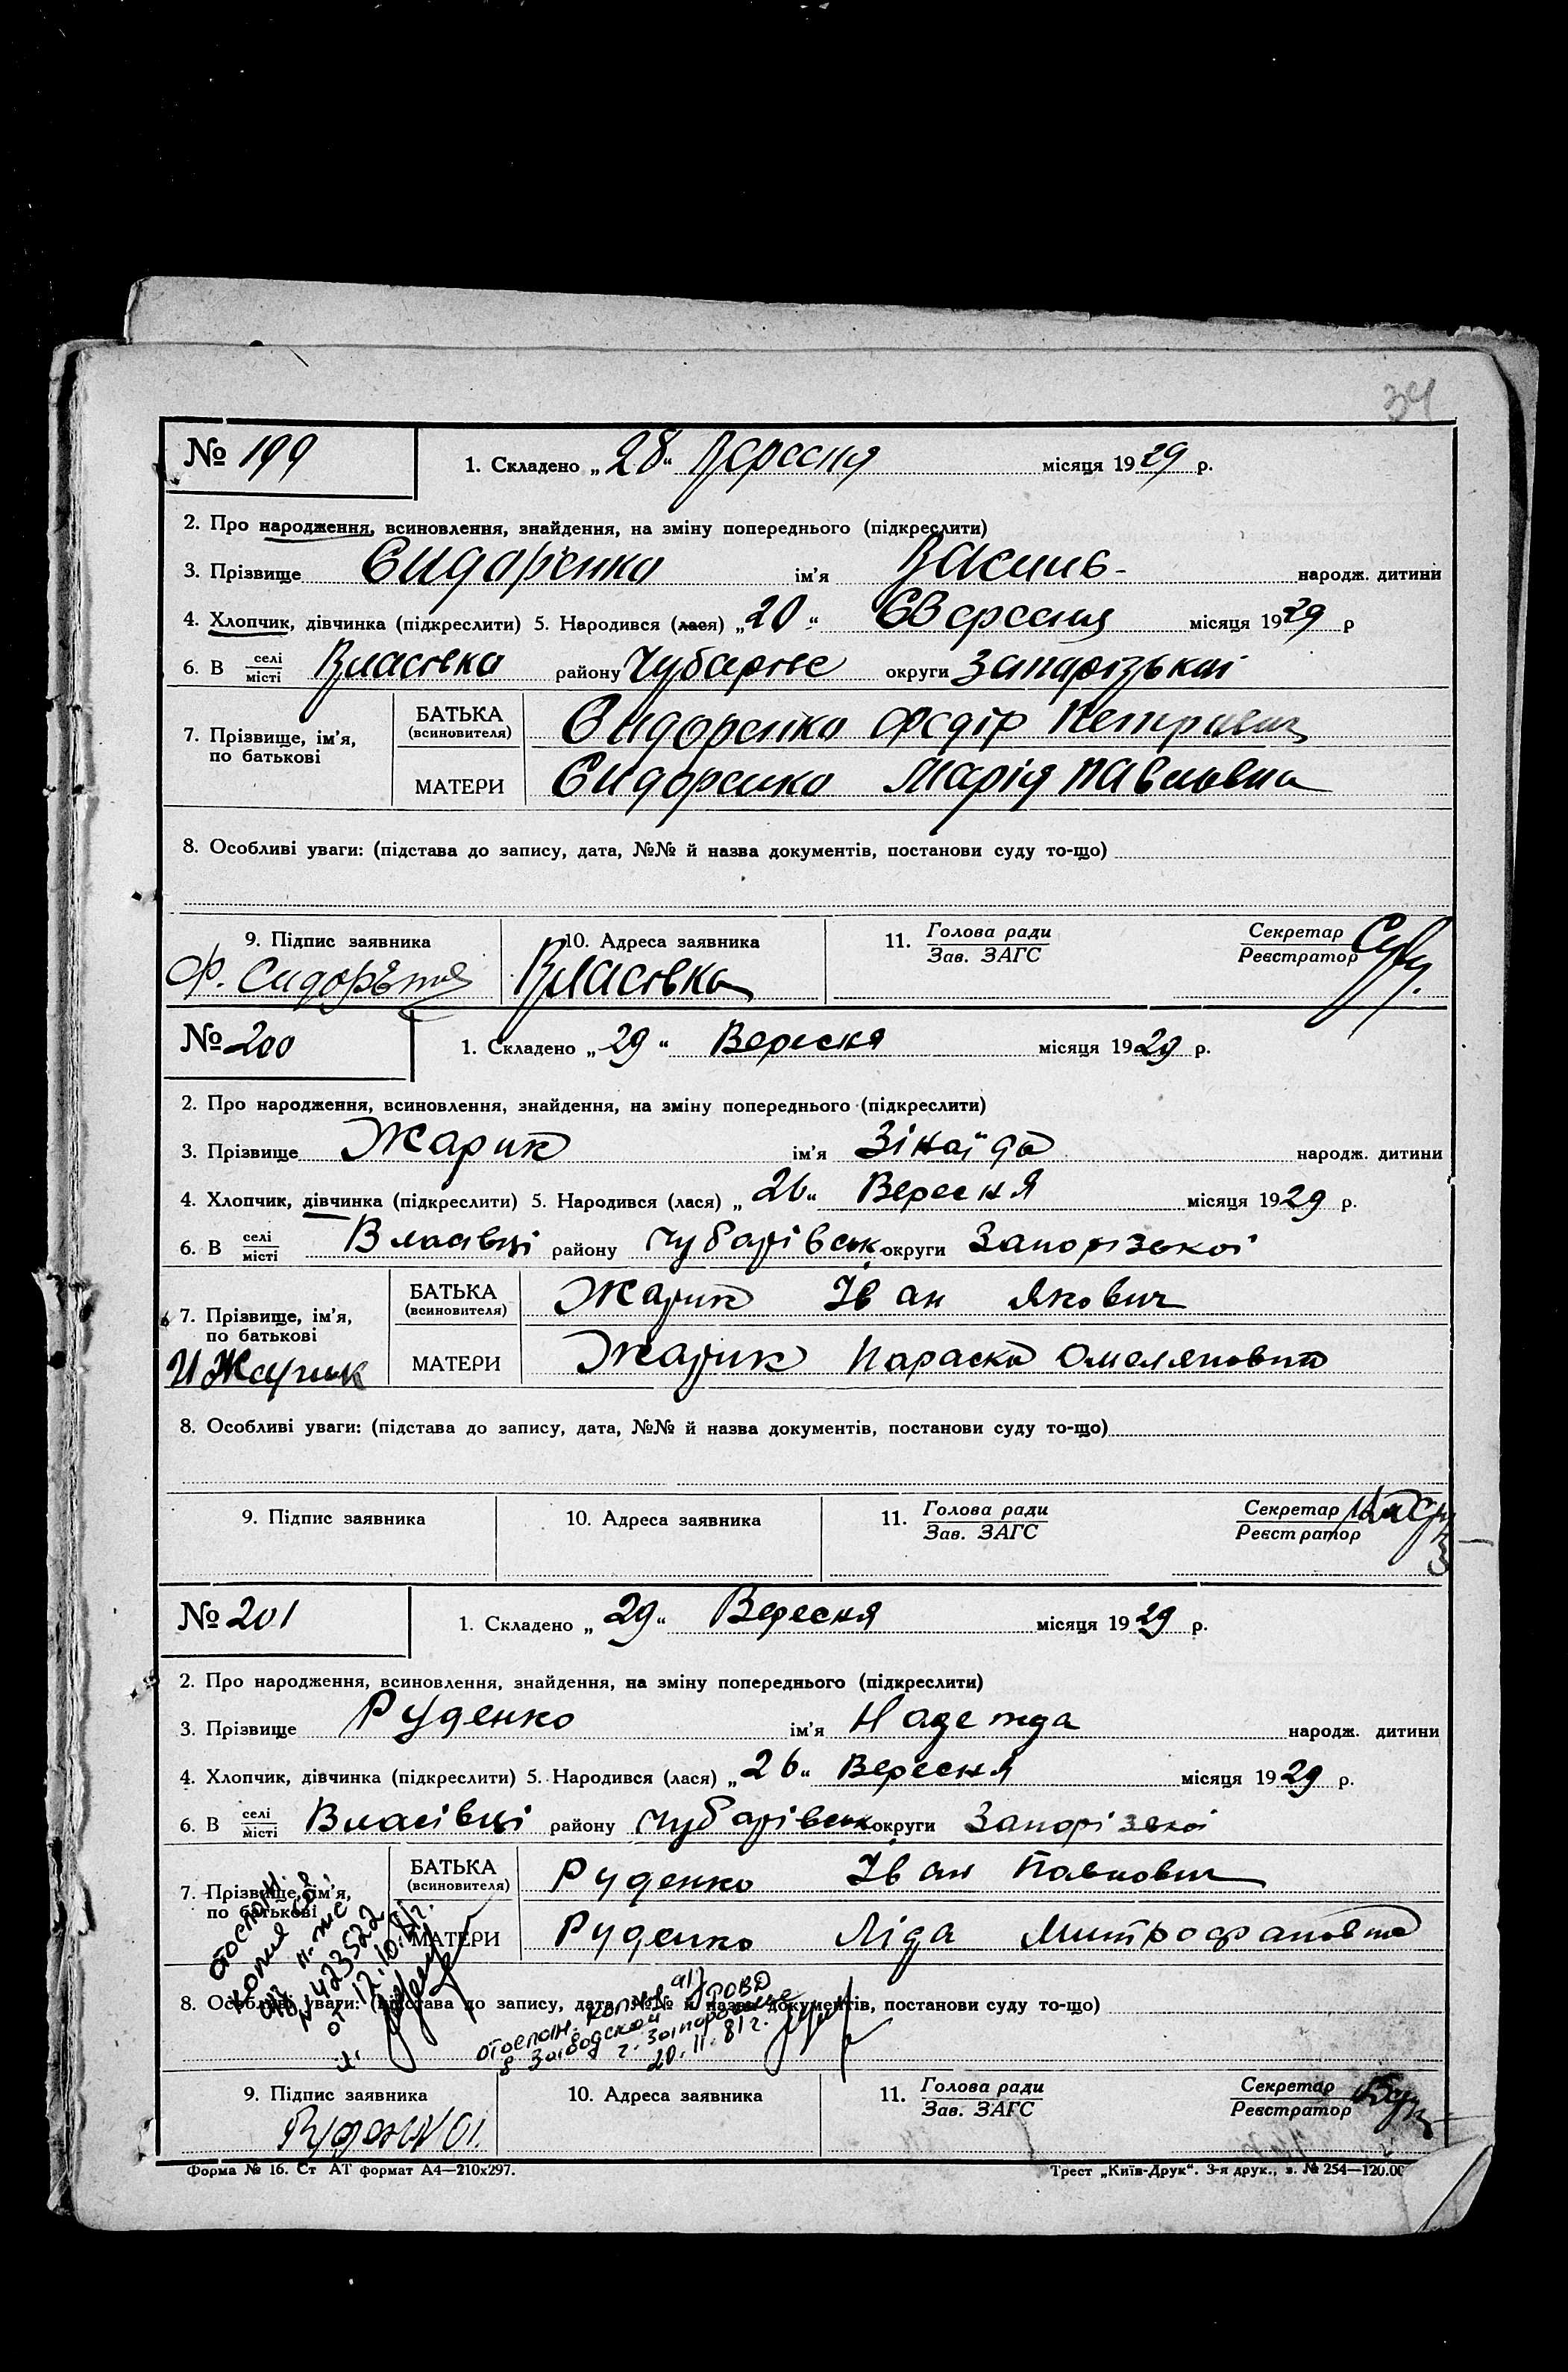 34
№ 199
1. Складено „28“ Вересня місяця 1929 р.
2. Про народження, всиновлення, знайдення, на зміну попереднього (підкреслити)
3. Прізвище Сидоренко ім’я Василь народж. дитини
4. Хлопчик, дівчинка (підкреслити) 5. Народився (лася) „20“ Вересня місяця 1929 р
6. В селі місті Власовка району Чубарове округи Запорізької
7. Прізвище, ім’я, по батькові
БАТЬКА (всиновителя) Сидоренко Федір Петрович
МАТЕРИ Сидоренко Марія Павловна
8. Особливі уваги: (підстава до запису, дата, №№ й назва документів, постанови суду то-що)
9. Підпис заявника
10. Адреса заявника
11. Голова ради Зав. ЗАГС
Секретар Реєстратор
Ф.
Власовка
№ 200
1. Складено „29“ Вересня місяця 1929 р.
2. Про народження, всиновлення, знайдення, на зміну попереднього (підкреслити)
3. Прізвище Жарик ім’я Зінаїда народж. дитини
4. Хлопчик, дівчинка (підкреслити) 5. Народився (лася) „26“ Вересня місяця 1929 р.
6. В селі місті Власівці району Чубарівськ округи Запорізької
7. Прізвище, ім’я, по батькові
БАТЬКА (всиновителя) Жарик Іван Якович
И Жарик
МАТЕРИ Жарик Параска Омеляновна
8. Особливі уваги: (підстава до запису, дата, №№ й назва документів, постанови суду то-що)
9. Підпис заявника
10. Адреса заявника
11. Голова ради Зав. ЗАГС
Секретар Реєстратор
№ 201
1. Складено „29“ Вересня місяця 1929 р.
2. Про народження, всиновлення, знайдення, на зміну попереднього (підкреслити)
3. Прізвище Руденко ім’я Надежда народж. дитини
4. Хлопчик, дівчинка (підкреслити) 5. Народився (лася) „26“ Вересня місяця 1929 р.
6. В селі місті Власівці району Чубарівськ округи Запорізскої
7. Прізвище, ім’я, по батькові
БАТЬКА (всиновителя) Руденко Іван Павлович
МАТЕРИ Руденко Ліда Митрофановна
копия
№ 423522
от 12.10.81г.
8. Особливі уваги: (підстава до запису, дата, №№ й назва документів, постанови суду то-що)
отослан. копия а/з
в Заводской РОВД
г. Запорожье
20.11.81г.
9. Підпис заявника
10. Адреса заявника
11. Голова ради Зав. ЗАГС
Секретар Реєстратор
Форма № 16. Ст АТ формат А4—210х297.
Трест „Київ-Друк“. 3-я друк., з. № 254—120.00